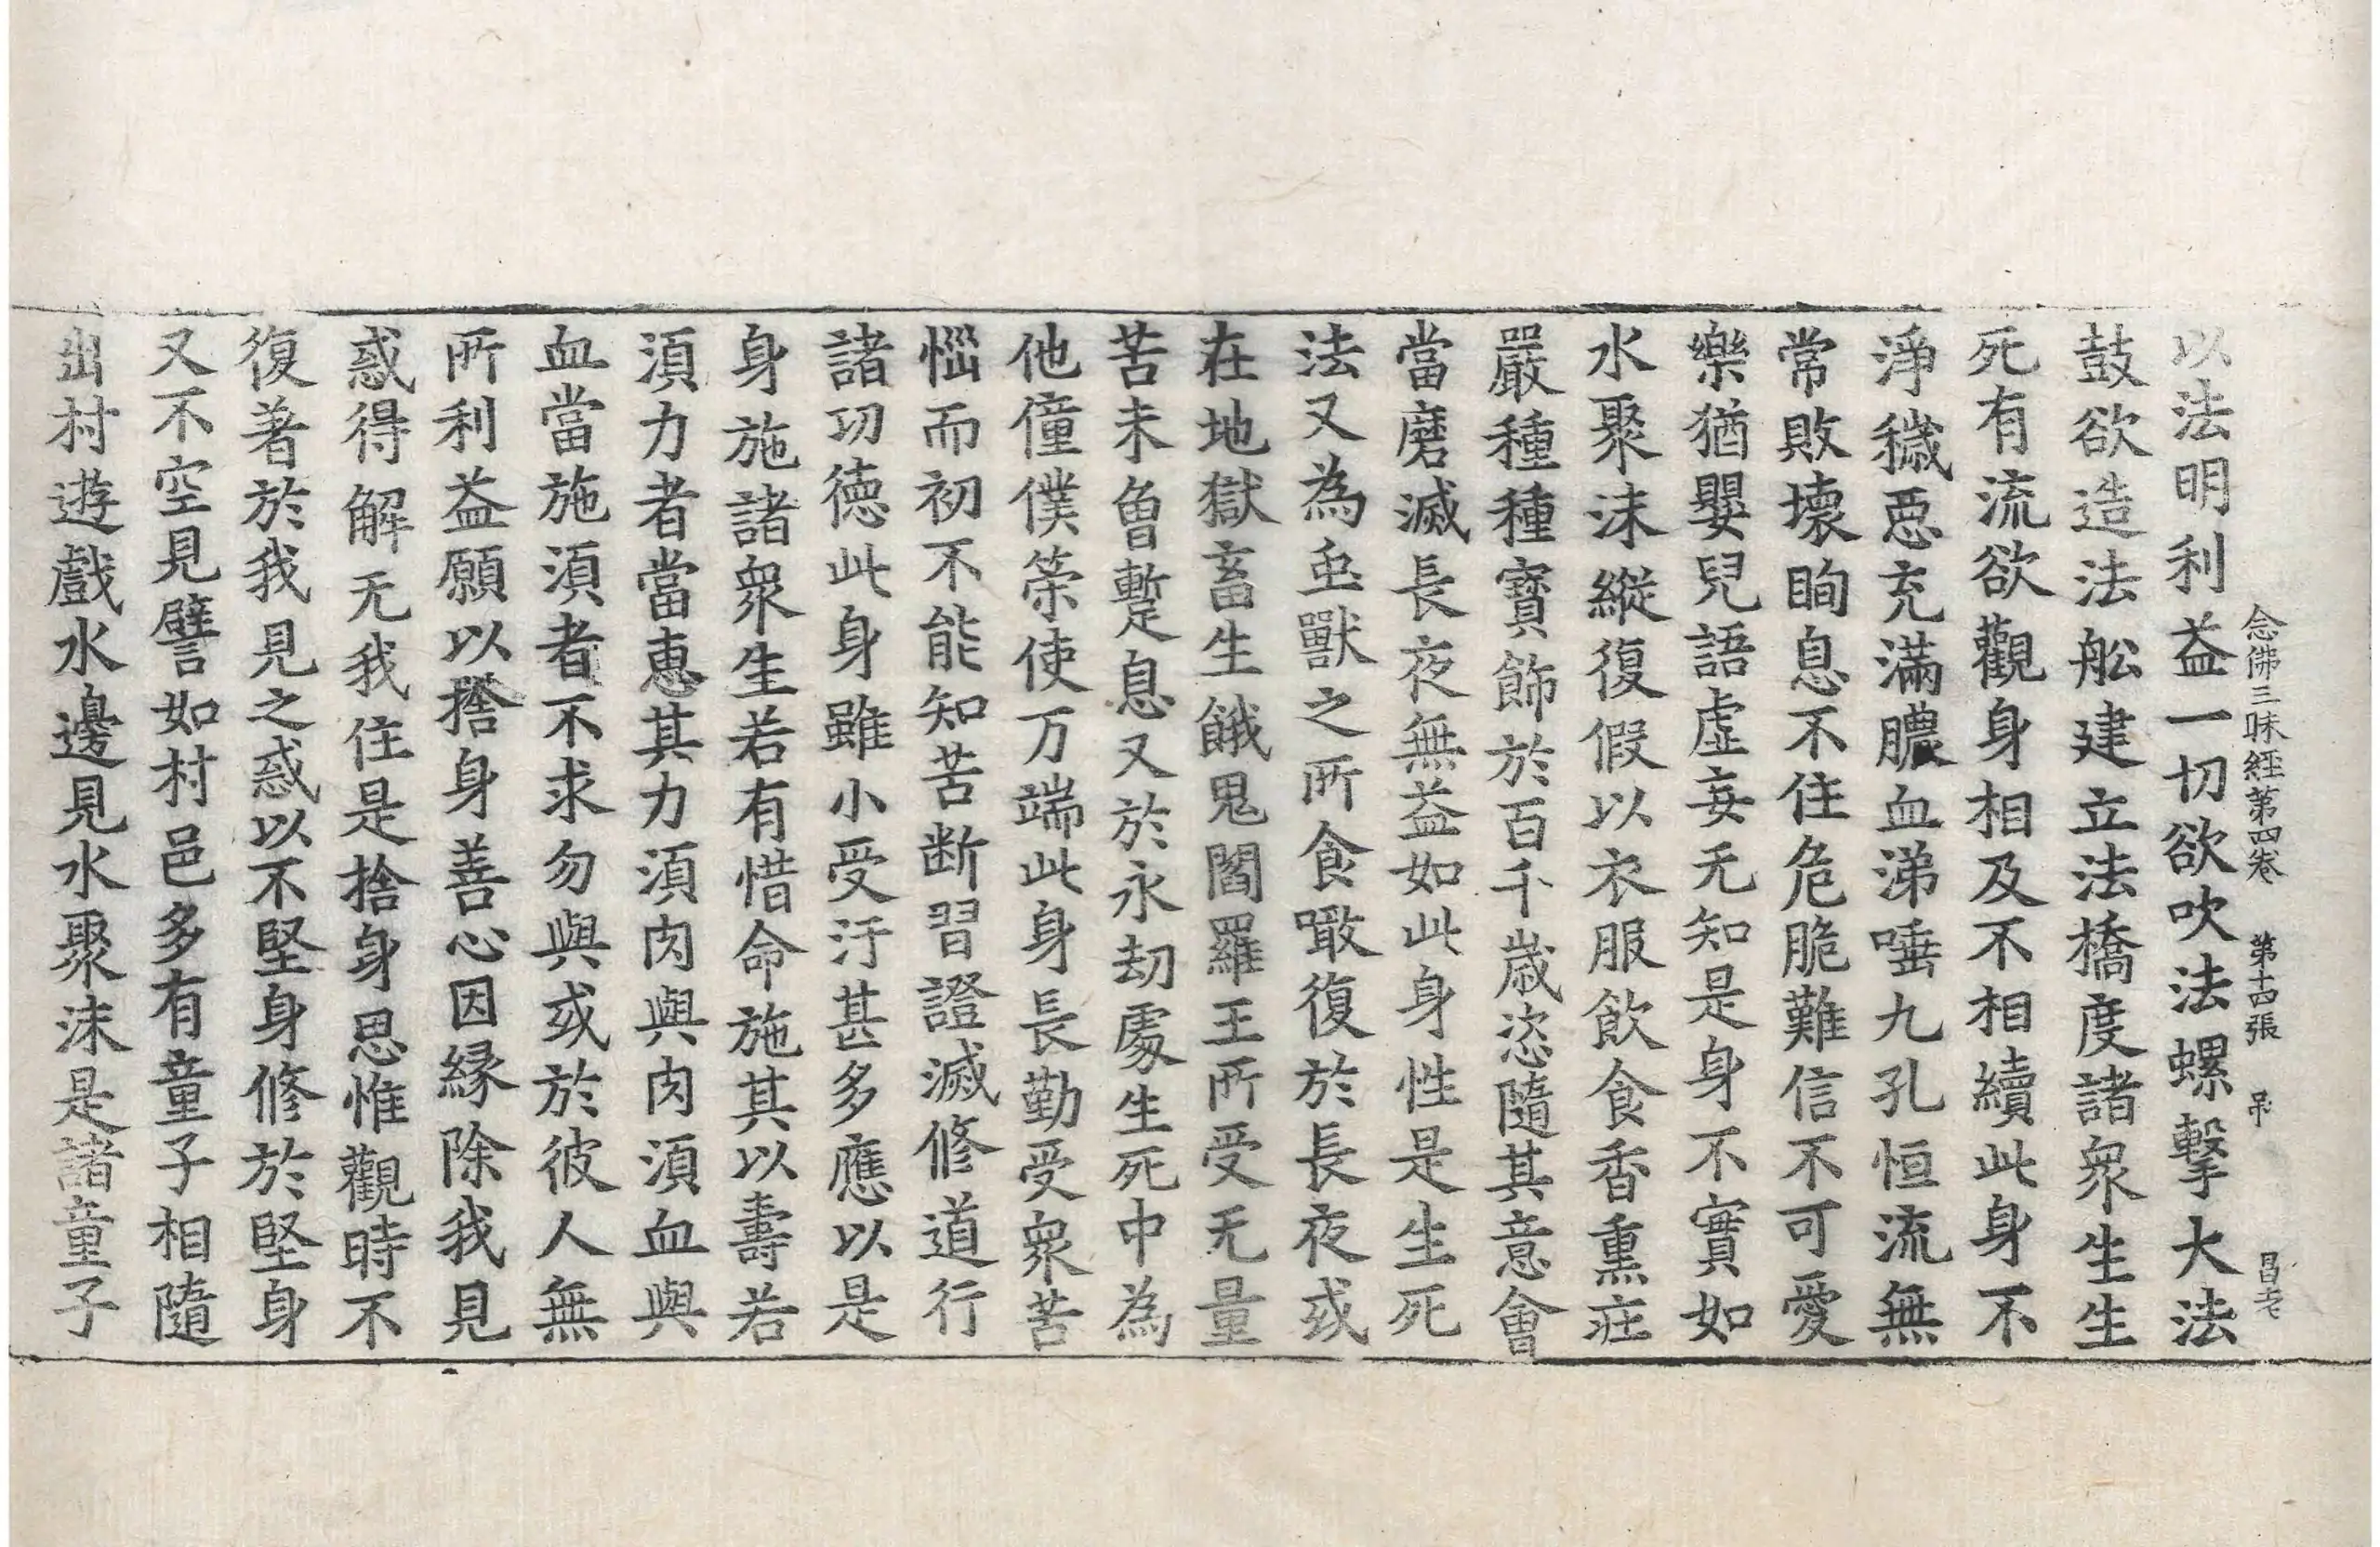 念佛三昧經第四卷 第十四張 吊 昌老
以法明利益一切欲吹法螺擊大法
鼓欲造法舩建立法橋度諸衆生生
死有流欲觀身相及不相續此身不
淨穢惡充滿膿血涕唾九孔恒流無
常敗壞眴息不住危脆難信不可愛
樂猶嬰兒語虛妄无知是身不實如
水聚沫縱復假以衣服飲食香熏莊
嚴種種寶飾於百千歲恣隨其意會
當磨滅長夜無益如此身性是生死
法又為虫獸之所食噉復於長夜或
在地獄畜生餓鬼閻羅王所受无量
苦未曾蹔息又於永劫處生死中為
他僮僕榮使万端此身長勤受衆苦
惱而初不能知苦断習證滅修道行
諸功德此身雖小受汙甚多應以是
身施諸衆生若有惜命施其以壽若
須力者當惠其力須肉與肉須血與
血當施須者不求勿與或於彼人無
所利益願以捨身善心因緣除我見
惑得解无我住是捨身思惟觀時不
復著於我見之惑以不堅身修於堅身
又不空見譬如村邑多有童子相隨
出村遊戲水邊見水聚沫是諸童子